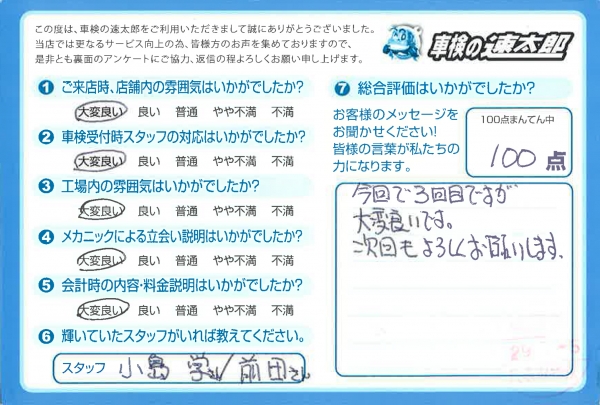 この度は、車検の速太郎をご利用いただきまして誠にありがとうございました。
当店では更なるサービス向上の為、皆様方のお声を集めておりますので、
是非とも裏面のアンケートにご協力、返信の程よろしくお願い申し上げます。
車検の速太郎
1 ご来店時、店舗内の雰囲気はいかがでしたか?
大変良い 良い 普通 やや不満 不満
2 車検受付時スタッフの対応はいかがでしたか?
大変良い 良い 普通 やや不満 不満
3 工場内の雰囲気はいかがでしたか?
大変良い 良い 普通 やや不満 不満
4 メカニックによる立会い説明はいかがでしたか?
大変良い 良い 普通 やや不満 不満
5 会計時の内容・料金説明はいかがでしたか?
大変良い 良い 普通 やや不満 不満
6 輝いていたスタッフがいれば教えてください。
スタッフ 小島 学さん/前田さん
7 総合評価はいかがでしたか?
お客様のメッセージを
お聞かせください!
皆様の言葉が私たちの
力になります。
100点まんてん中
100 点
今回で3回目ですが
大変良いです。
次回もよろしくお願いします。